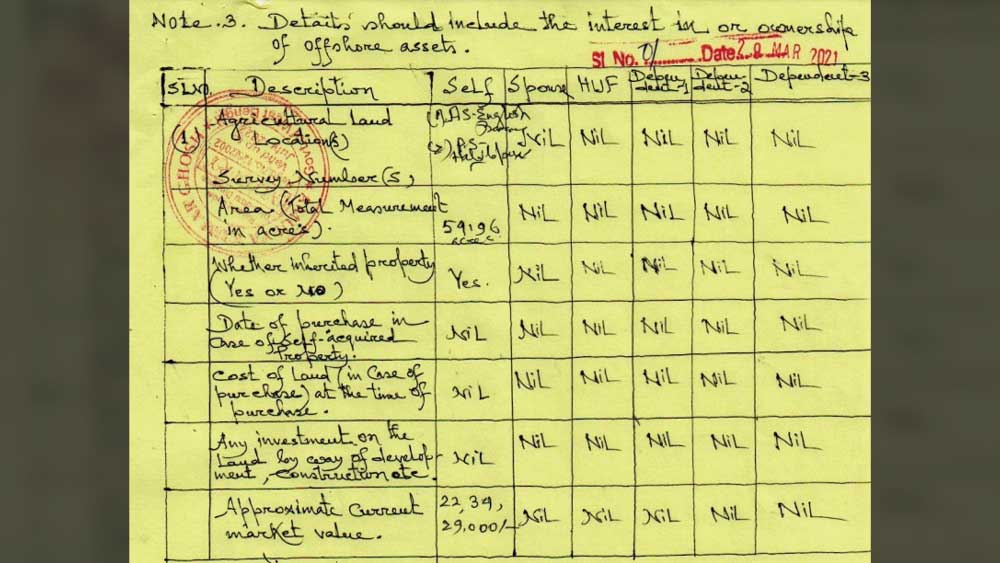 Note.3. Details should include the interest in or ownership
of offshore assets.
Sl No. 01 Date 18 MAR 2021
SLNO. Description Self Spouse HUF Depen dent-1 Depen dent-2 Dependent-3
(1) Agricultural Land
Location(s)
(1).AS-English
(2).P.S-
Nil Nil Nil Nil Nil
Survey Number(S)
Area (Total Measurement
in acre's).
59.96
acres
Nil Nil Nil Nil Nil
Whether inherited property
(Yes or No)
Yes. Nil Nil Nil Nil Nil
Date of purchase in
Case of Self-acquired
Property.
Nil Nil Nil Nil Nil Nil
Cost of Land (in Case of
purchase) at the time of
purchase.
Nil Nil Nil Nil Nil Nil
Any investment on the
Land by way of develop-
ment, Construction etc.
Nil Nil Nil Nil Nil Nil
Approximate Current
market value.
22,34,
29,000/-
Nil Nil Nil Nil Nil